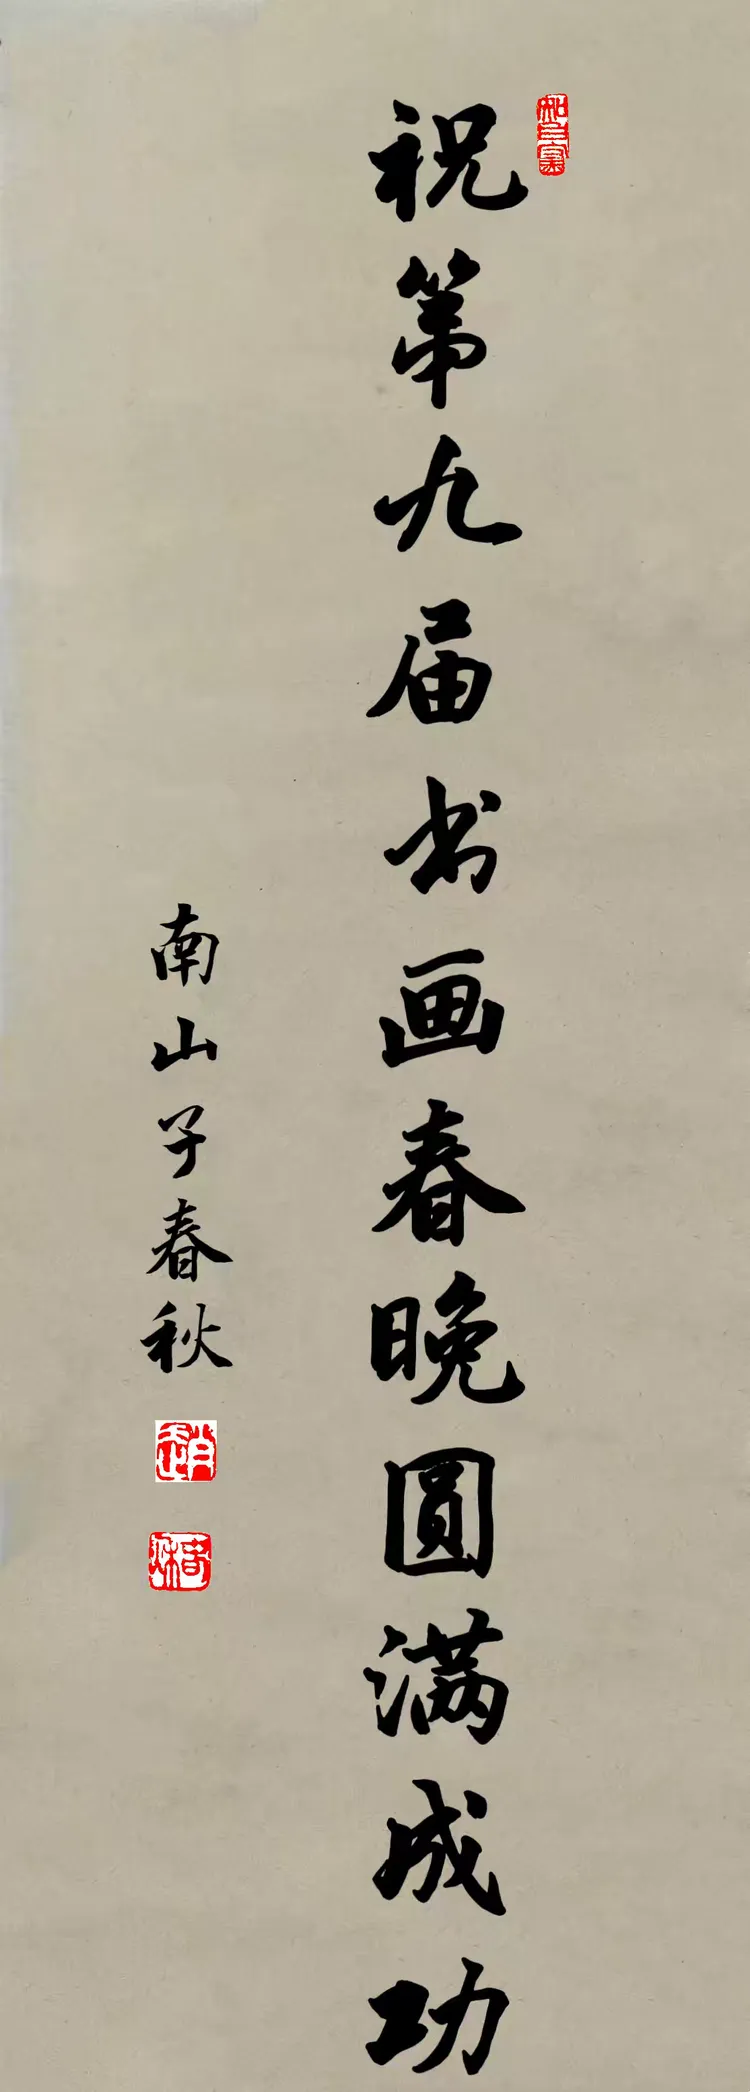 祝第九届书画春晚圆满成功
南山子春秋